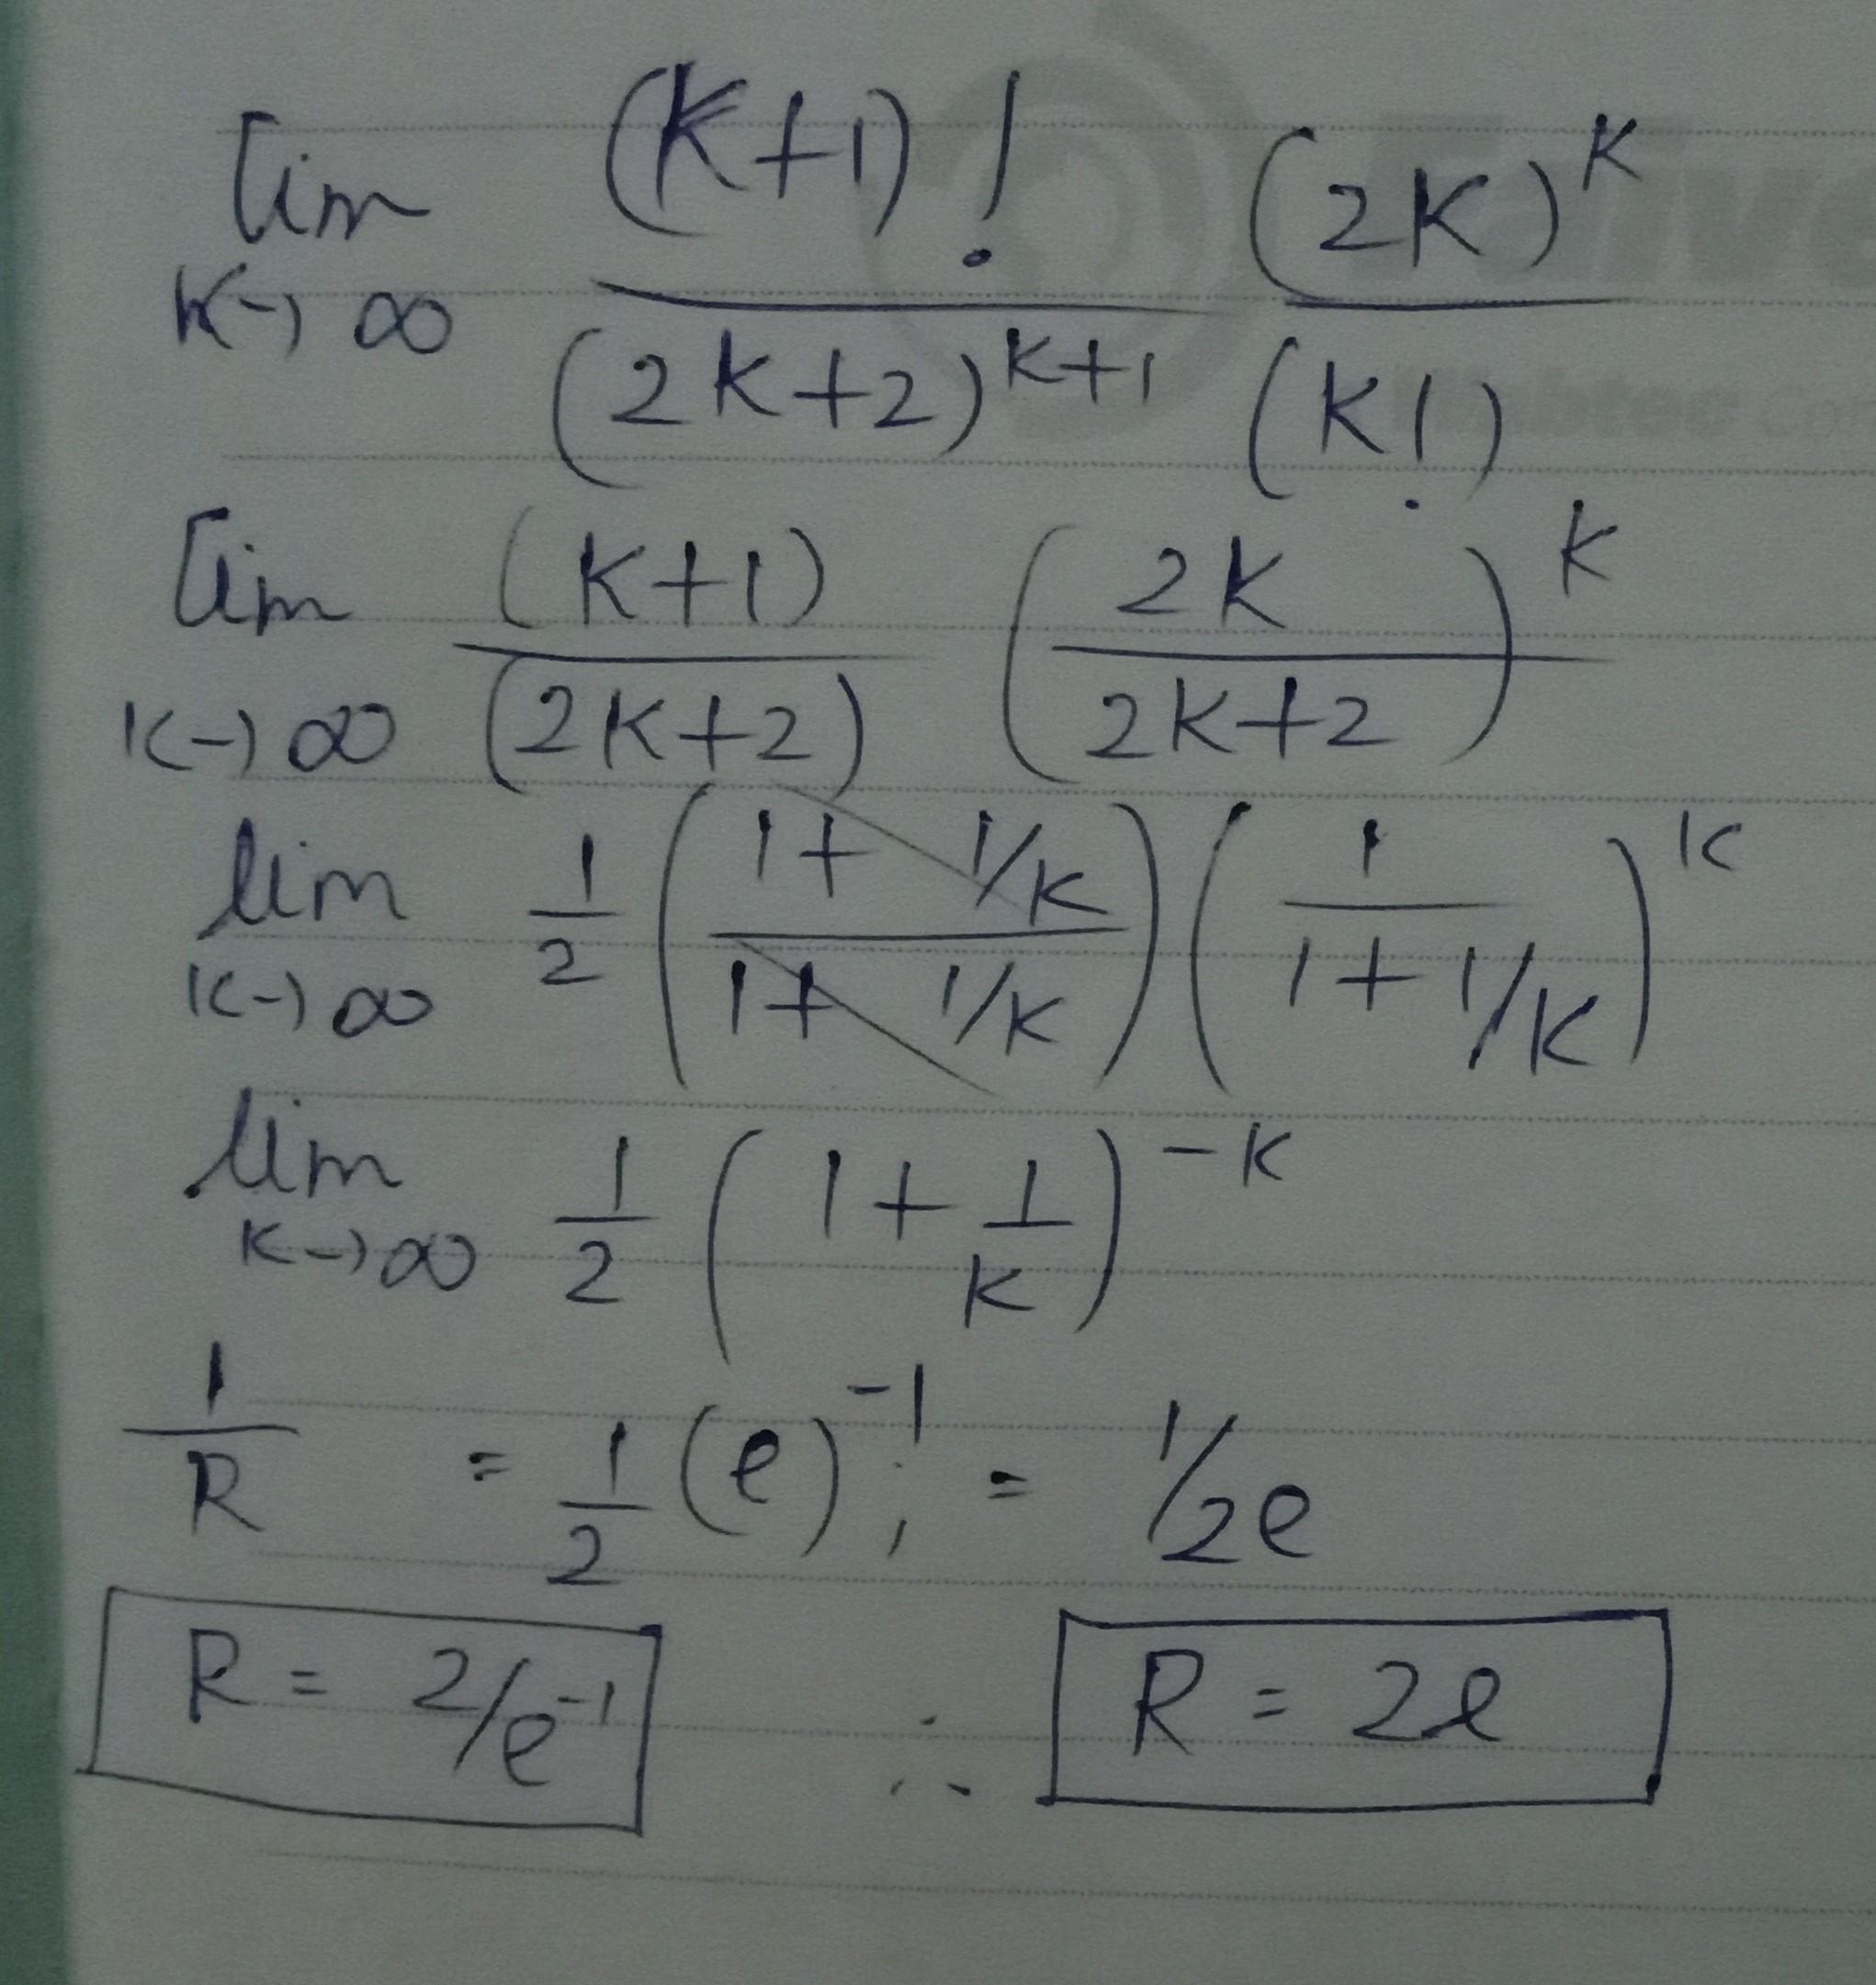 lim K→∞ (K+1)! / (2K+2)^(K+1) (2K)^K / (K!)
lim K→∞ (K+1) / (2K+2) (2K / 2K+2)^K
lim K→∞ 1/2 (1+ 1/K / 1+ 1/K) (1 / 1+1/K)^K
lim K→∞ 1/2 (1+ 1/K)^-K
1/R = 1/2 (e)^-1 ; = 1/2e
R = 2/e^-1 ∴ R = 2e